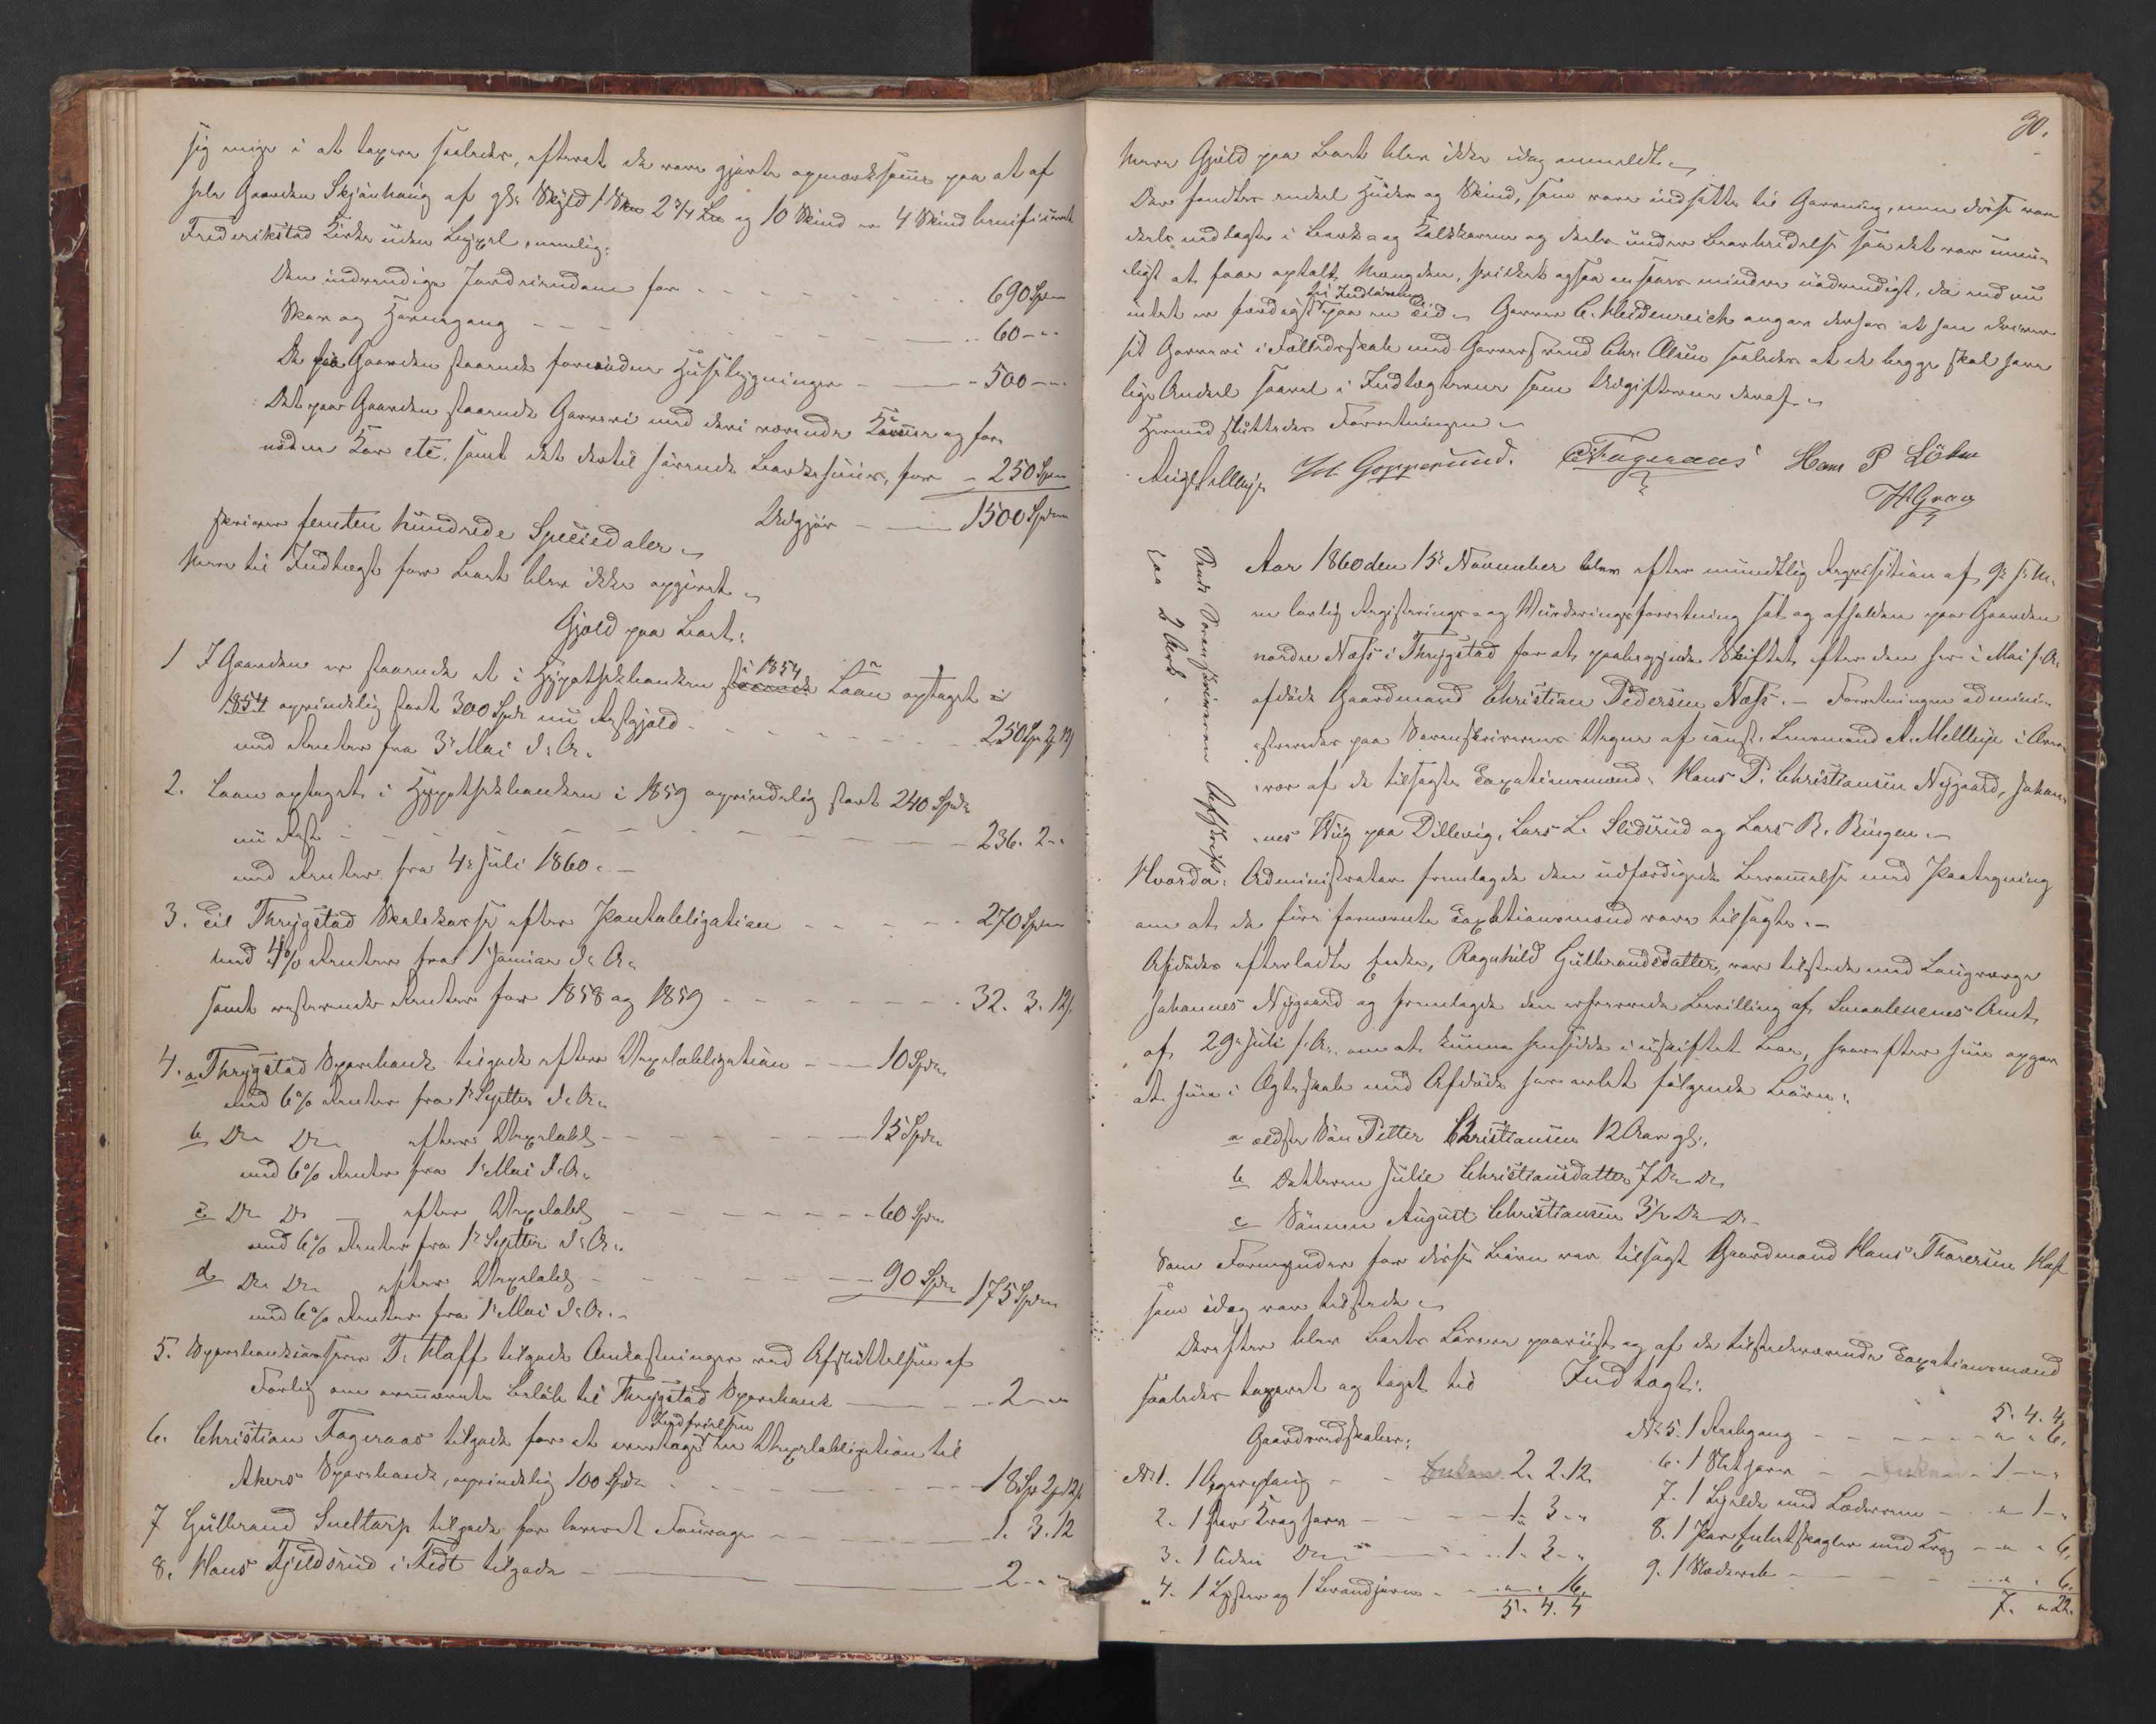 sig enige i at taxere saaledes, efterat de vare gjorte opmærksomme paa at af
hele Gaarden Skjønhaug af gl. Skyld 1 Skn 2 3/4 Lu og 10 Skind er 4 Skind benificeret
Frederikstad Kirke uden Bygsel, nemlig:
Den indvendige Jordeiendom for 690 Spd
Skov og Havnegang 60 "
De paa Gaarden staaende foruden Husebygninger 500 "
Det paa Gaarden staaende Garveri med deri værende Kummer og for-
nødne Kar etc. samt det dertil hørende Barkehuus, for 250 Spd
Udgjør 1500 Spd
skriver femten hundrede Speciedaler
Mere til Indtægt for Boet blev ikke opgivet
Gjæld paa Boet:
1 I Gaarden er staaende et i Hypothekbanken i 1854 Laan optaget
1854 oprindelig stort 300 Spd nu Restgjæld
med Renter fra 3 Mai d. A. 250 Sp 2 12
2. Laan optaget i Hypothekbanken i 1859 oprindelig stort 240 Spd
nu Rest 236. 2 "
med Renter fra 4 Juli 1860.
3. Til Thrygstad Skolekasse efter Pantobligation 270 Spd
med 4% Renter fra 1 Januar d. A.
samt resterende Renter for 1858 og 1859 32. 3. 12
4. a Thrygstad Sparebank tilgode efter Vexelobligation 10 Spd
med 6% Renter fra 1 Septbr d. A.
b Do Do efter Vexelobl 15 Spd
med 6% Renter fra 1 Mai d. A.
c Do Do efter Vexelobl 60 Spd
med 6% Renter fra 1 Septbr d. A.
d Do Do efter Vexelobl 90 Spd 175 Spd
med 6% Renter fra 1 Mai d. A.
5. Sparebankkasserer T. Haff tilgode Omkostninger ved Afsluttelsen af
Forlig om ovennævnte Beløb til Thrygstad Sparebank 2 "
6. Christian Fageraas tilgode for et Indfrielsen en Vexelobligation til
Akers Sparebank, oprindelig 100 Spd 18 Sp 2 12
7 Gulbrand Sneltorp tilgode for leveret Fourage 1. 3. 12
8. Hans Fjeldsrud i Tedt tilgode 2 "
30.
Mere Gjæld paa Boet blev ikke idag anmeldt
Der fandtes endel Huder og Skind, som vare indsatte til Garvning, men disse var
dels nedlagte i Bark- og Kalkkarrene og dels under Bearbeidelse saa det var umu-
ligt at faae optalt Mængden, hvilket ogsaa ansaaes mindre nødvendigt, da end nu
intet er færdigt til Indløsning paa en Tid. Garver C. Heidenreich angav derfor at han driver
sit Garveri i Fælledsskab med Garversvend Chr. Olsen saaledes at de begge skal have
lige Andeel saavel i Indtægterne som Udgifterne deraf
Hermed sluttedes Forretningen
A. Mellbye Joh Gopperud. C Fageraas Hans P Löken
H Graa
Aar 1860 den 15 November blev efter mundtlig Requisition af
en lovlig Registrerings- og Vurderingsforretning sat og afholden paa Gaarden
nordre Næss i Thrygstad for at paabegynde Skiftet efter den her i Mai f. A.
afdøde Gaardmand Christian Pedersen Næss. Forretningen admini-
streredes paa Sorenskriverens Vegne af const. Lensmand A. Mellbye i Over-
vær af de tilsagte Taxationsmænd: Hans P. Christiansen Nygaard, Johan-
nes Wiig paa Dillevig, Lars L. Slidsrud og Lars R. Ringen.
Sendt Sorenskriveren Afskrift
paa 2 Ark.
Hvorda: Administrator fremlagde den udfærdigede Berammelse med Paategning
om at de fire fornævnte Taxationsmænd vare tilsagte.
Afdødes efterladte Enke, Ragnhild Gulbrandsdatter, var tilstede med Laugværge
Johannes Nygaard og fremlagde den erhvervede Bevilling af Smaalenenes Amt
af 29 Juli f. A. om at kunne hensidde i uskiftet Boe, hvorefter hun opgav
at hun i Ægteskab med Afdøde har avlet følgende Børn:
a ældste Søn Petter Christiansen 12 Aar gl.
b Datteren Julie Christiansdatter 7 Do Do
c Sønnen August Christiansen 3 1/2 Do Do
Som Formynder for disse Børn var tilsagt Gaardmand Hans Thoresen Haf
som idag var tilstede
Derefter blev Boets Løsøre paaviist og af de tilstedeværende Taxationsmænd
saaledes taxeret og taget til Indtægt:
Gaardsredskaber:
No 1. 1 Enken 2. 2. 12.
2. 1 1. 3 "
3. 1 liden Do 1. 3 "
4. 1 Lyster og 1 Brandjern " " 16.
5. 4. 4
5. 4. 4
No 5. 1 " " 6.
6. 1 Enken 1 " "
7. 1 " 1 "
8. 1 Par " " 6.
9. 1 " " 6.
7. " 22.